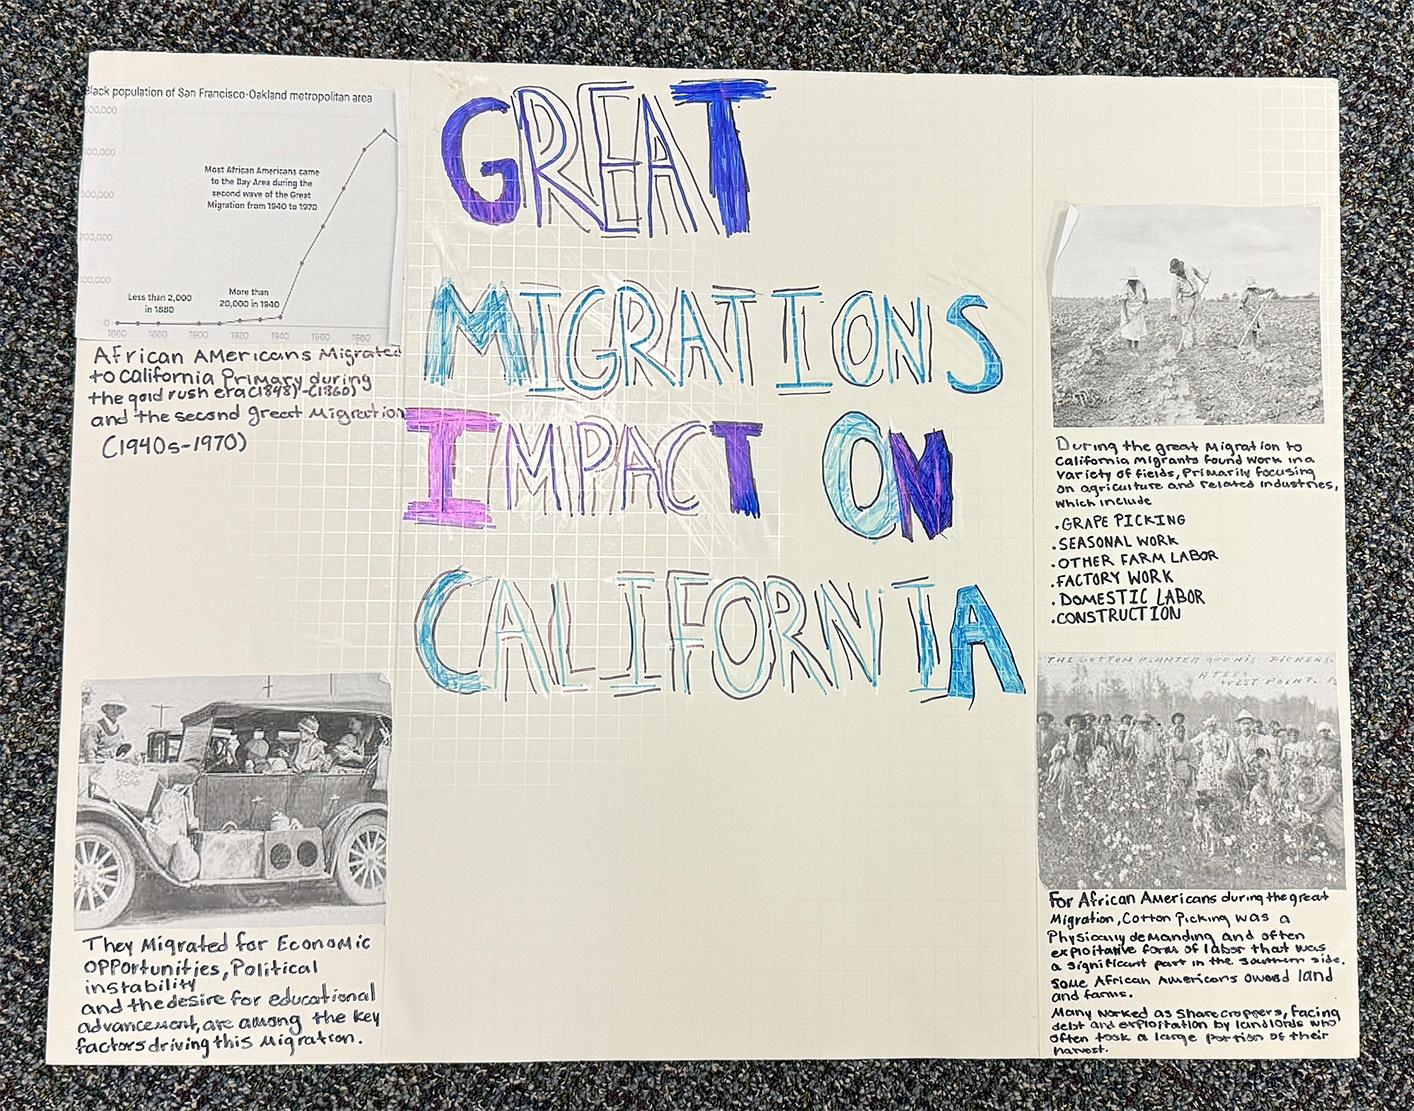 Black population of San Francisco-Oakland metropolitan area
500,000
400,000
300,000
200,000
100,000
0
Most African Americans came
to the Bay Area during the
second wave of the Great
Migration from 1940 to 1970
Less than 2,000
in 1880
More than
20,000 in 1940
1860 1880 1900 1920 1940 1960 1980
African Americans Migrated
to California Primary during
the gold rush era (1848)-(1860)
and the second great Migration
(1940s-1970)
They Migrated for Economic
opportunities, Political
instability
and the desire for educational
advancement, are among the key
factors driving this Migration.
GREAT
MIGRATIONS
IMPACT ON
CALIFORNIA
During the great Migration to
California Migrants found work in a
variety of fields, Primarily focusing
on agriculture and related industries,
which include
. GRAPE PICKING
. SEASONAL WORK
. OTHER FARM LABOR
. FACTORY WORK
. DOMESTIC LABOR
. CONSTRUCTION
THE COTTON PLANTER AND HIS PICKERS.
WEST POINT.
For African Americans during the great
Migration, Cotton Picking was a
Physically demanding and often
exploitative form of labor that was
a significant part in the southern side.
some African Americans owned land
and farms.
Many worked as Sharecroppers, facing
debt and exploitation by landlords who
often took a large portion of their
harvest.